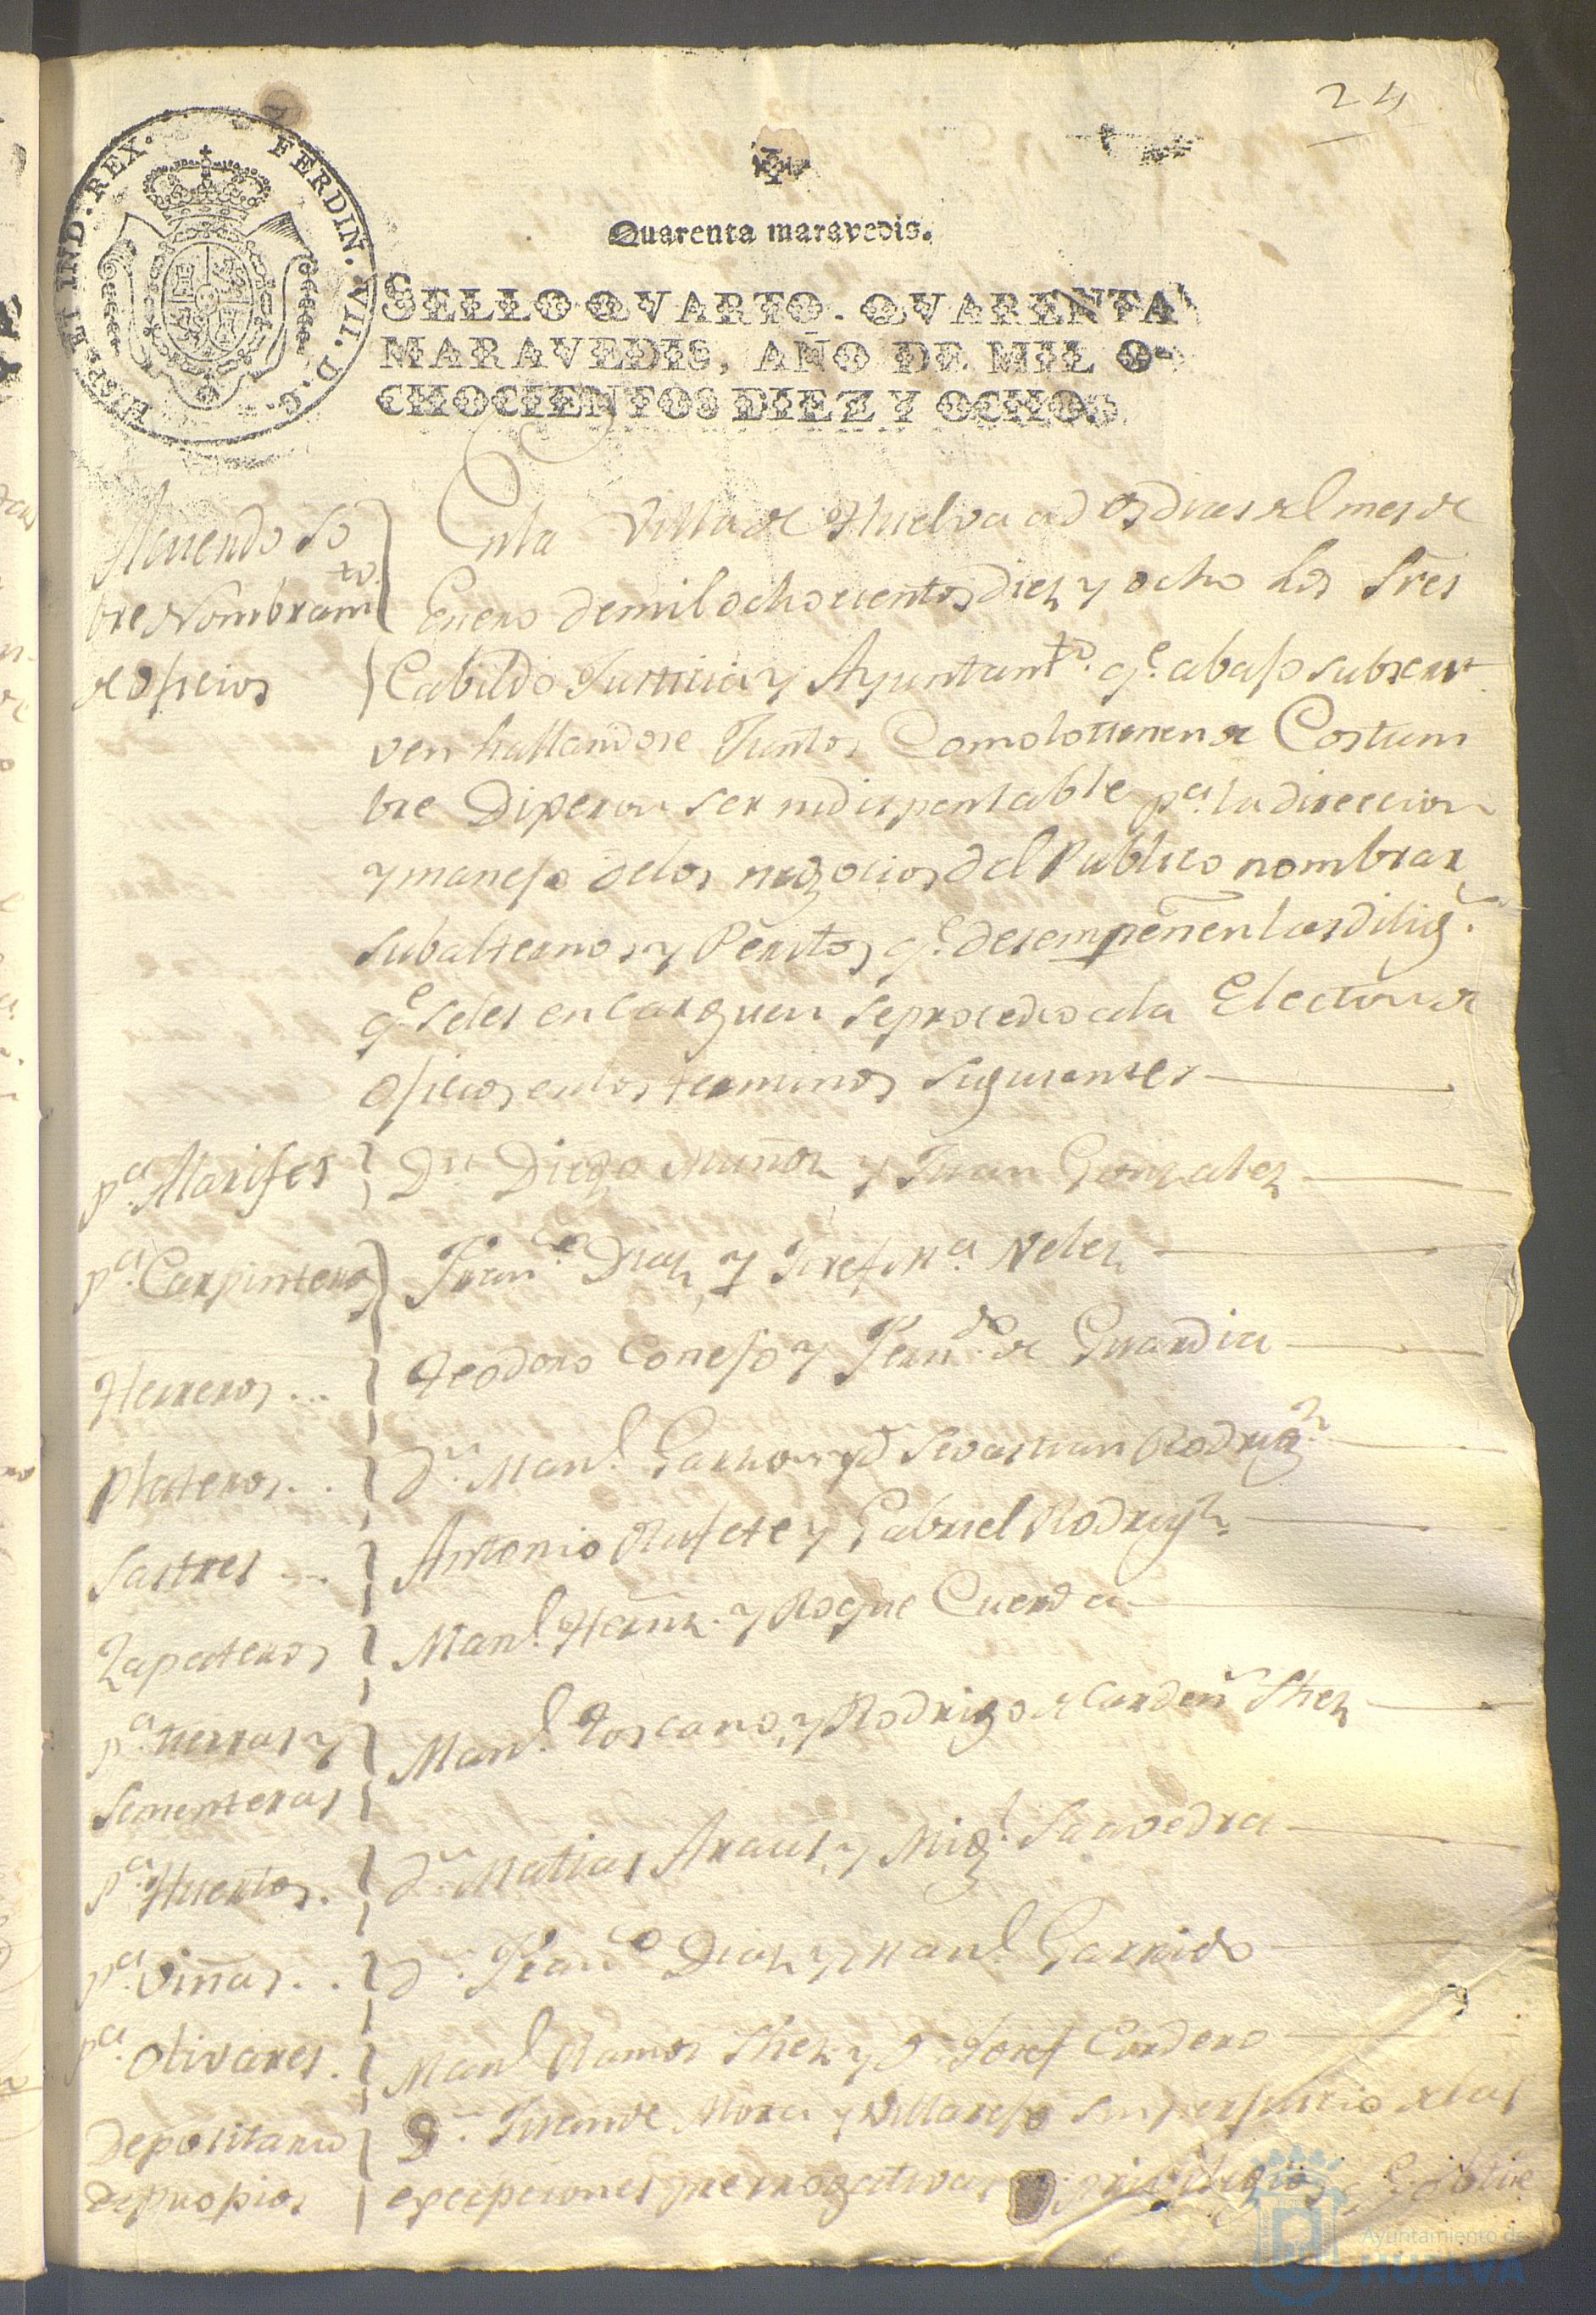 24
HISP. ET IND. REX. FERDIN. VII. D. G.
Quarenta maravedis.
SELLO QVARTO. QVARENTA
MARAVEDIS, AÑO DE MIL O-
CHOCIENTOS DIEZ Y OCHO.
Acuerdo so
bre Nombram.to
de oficios
Enla Villa de Huelva a dos dias del mes de
Enero de mil ochocientos diez y ocho los Sres
Cabildo Justicia y Ayuntam.to q.e abajo subscri
ven hallandose Juntos Como lo tienen de Costum
bre Dixeron ser indispensable p.a la direccion
y manejo delos negocios del Publico nombrar
subalternos y Peritos q.e desempeñen las dilig.s
q.e seles encarguen se procedio ala Election de
oficios enlos terminos siguientes
p.a Alarifes
D.n Diego Muñoz y Juan Gonzalez
p.a Carpinteros
Fran.co Diaz y Josef M.a Velez
Herreros ...
Teodoro Conejo y Fern.do de Guardia
Plateros ..
d.n Man.l Garzon y d.n Sevastian Rodrig.z
Sastres ...
Antonio Rufete y Gabriel Rodrig.z
Zapateros
Man.l Hernz. y Roque Cuerda
p.a tierras y
Sementeras
Man.l Toscano, y Rodrigo de Carden.s Shez
p.a Huertos.
d.n Matias Araus, y Mig.l Saavedra
p.a viñas ..
d.n Fran.co Diaz y Man.l Garrido
p.a Olivares.
Man.l Ramos Shez y d.n Josef Cordero
Depositario
de propios
D.n Juan de Mora y Villarejo sin perjuicio de las
excepciones prerrogativas y privilegios q.e obtiene
Ayuntamiento de
HUELVA